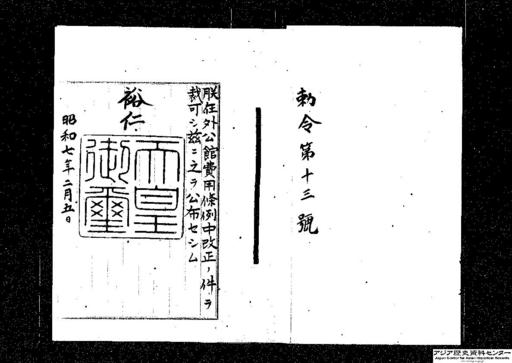 勅令第十三號
朕在外公館費用條例中改正ノ件ヲ
裁可シ茲ニ之ヲ公布セシム
裕仁
天皇
御璽
昭和七年二月五日
アジア歴史資料センター
Japan Center for Asian Historical Records